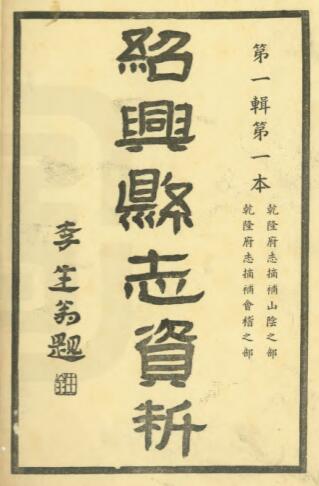 第一輯第一本
乾隆府志摘補山陰之部
乾隆府志摘補會稽之部
紹興縣志資料
李生翁題